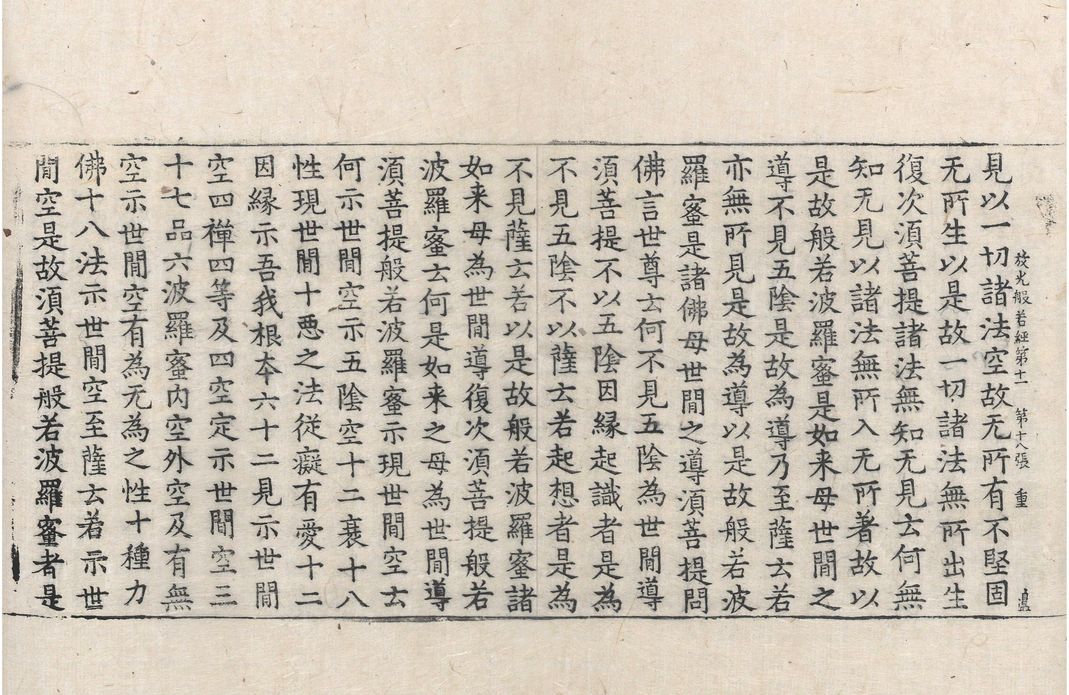 見以一切諸法空故无所有不堅固
放光般若經第十一 第十八張 重
无所生以是故一切諸法無所出生
復次湏菩提諸法無知无見云何無
知无見以諸法無所入无所著故以
是故般若波羅蜜是如来母世間之
導不見五隂是故為導乃至薩云若
亦無所見是故為導以是故般若波
羅蜜是諸佛母世間之導湏菩提問
佛言世尊云何不見五隂為世間導
湏菩提不以五隂因縁起識者是為
不見五隂不以薩云若起想者是為
不見薩云若以是故般若波羅蜜諸
如来母為世間導復次湏菩提般若
波羅蜜云何是如来之母為世間導
湏菩提般若波羅蜜示現世間空云
何示世間空示五隂空十二衰十八
性現世間十惡之法從癡有愛十二
因縁示吾我根夲六十二見示世間
空四禪四等及四空定示世間空三
十七品六波羅蜜内空外空及有無
空示世間空有為无為之性十種力
佛十八法示世間空至薩云若示世
間空是故湏菩提般若波羅蜜者是